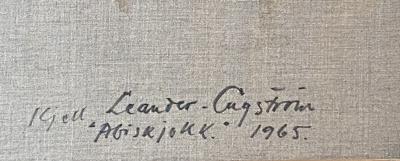 Kjell Leander-Engström
"Abiskjokk." 1965.